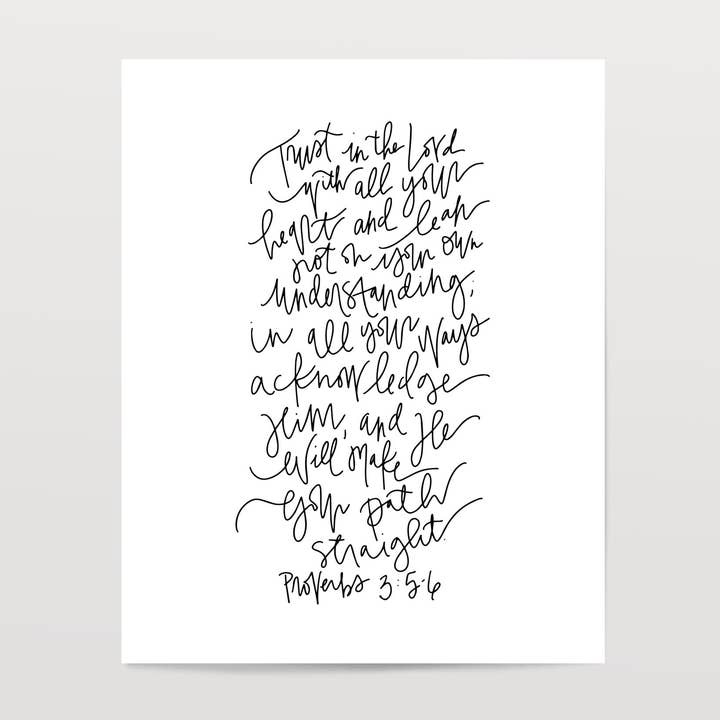 Trust in the Lord
with all your
heart and lean
not on your own
understanding;
in all your ways
acknowledge
Him, and He
will make
your path
straight.
Proverbs 3:5-6